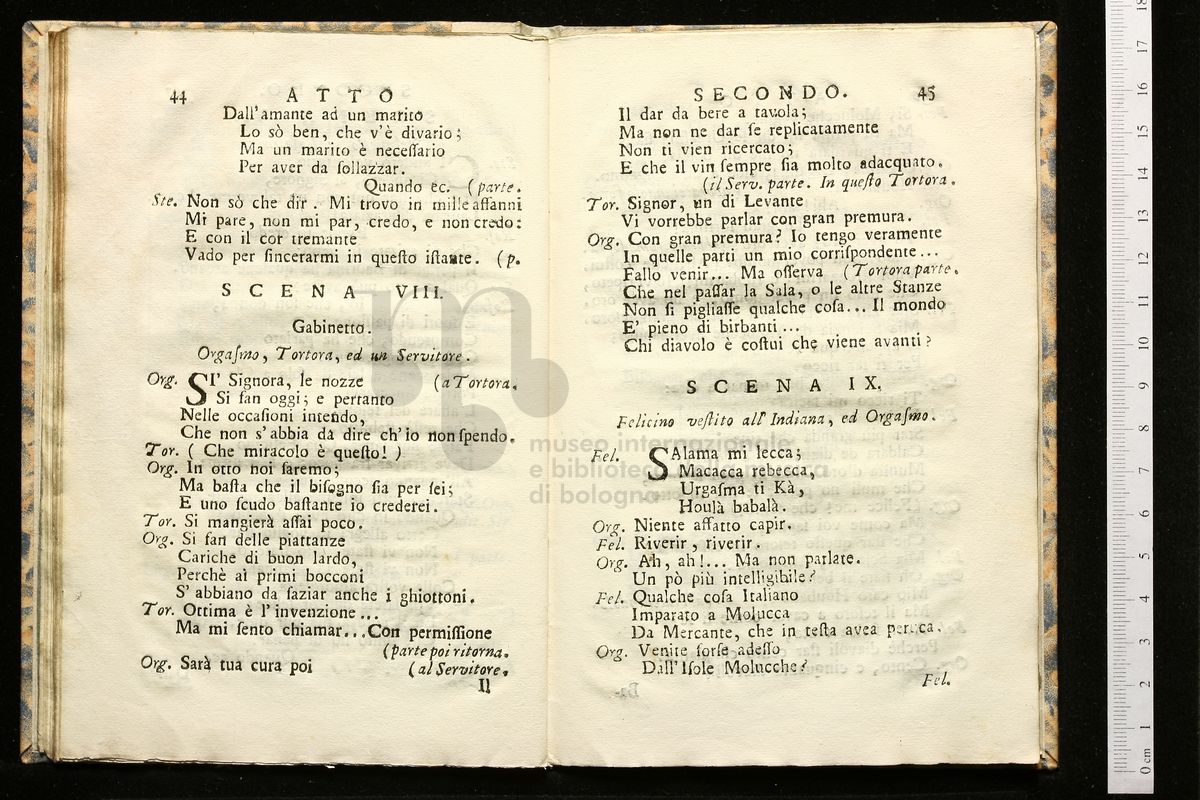 44 ATTO
Dall'amante ad un marito
Lo sò ben, che v'è divario;
Ma un marito è neceſſario
Per aver da ſollazzar.
Quando ec. (parte.
Ste. Non sò che dir. Mi trovo in mille affanni
Mi pare, non mi par, credo, e non credo:
E con il cor tremante
Vado per ſincerarmi in queſto iſtante. (p.
SCENA VIII.
Gabinetto.
Orgaſmo, Tortora, ed un Servitore.
Org. SI' Signora, le nozze (a Tortora.
Si fan oggi; e pertanto
Nelle occaſioni intendo,
Che non s'abbia da dire ch'io non ſpendo.
Tor. ( Che miracolo è queſto! )
Org. In otto noi ſaremo;
Ma baſta che il biſogno ſia per ſei;
E uno ſcudo baſtante io crederei.
Tor. Si mangierà aſſai poco.
Org. Si fan delle piattanze
Cariche di buon lardo,
Perchè ai primi bocconi
S'abbiano da ſaziar anche i ghiottoni.
Tor. Ottima è l'invenzione...
Ma mi ſento chiamar...Con permiſſione
(parte poi ritorna.
Org. Sarà tua cura poi (al Servitore.
Il
SECONDO. 45
Il dar da bere a tavola;
Ma non ne dar ſe replicatamente
Non ti vien ricercato;
E che il vin ſempre ſia molto adacquato.
(il Serv. parte. In queſto Tortora.
Tor. Signor, un di Levante
Vi vorrebbe parlar con gran premura.
Org. Con gran premura? Io tengo veramente
In quelle parti un mio corriſpondente...
Fallo venir... Ma oſſerva (Tortora parte.
Che nel paſſar la Sala, o le altre Stanze
Non ſi pigliaſſe qualche coſa... Il mondo
E' pieno di birbanti...
Chi diavolo è coſtui che viene avanti?
SCENA IX.
Felicino veſtito all'Indiana, ed Orgaſmo.
Fel. SAlama mi lecca;
Macacca rebecca,
Urgaſma ti Kà,
Houlà babalà.
Org. Niente affatto capir.
Fel. Riverir, riverir.
Org. Ah, ah!... Ma non parlate.
Un pò più intelligibile?
Fel. Qualche coſa Italiano
Imparato a Molucca
Da Mercante, che in teſta avea perucca.
Org. Venite forſe adeſſo
Dall'Iſole Molucche?
Fel.
museo internazionale
e biblioteca della musica
di bologna